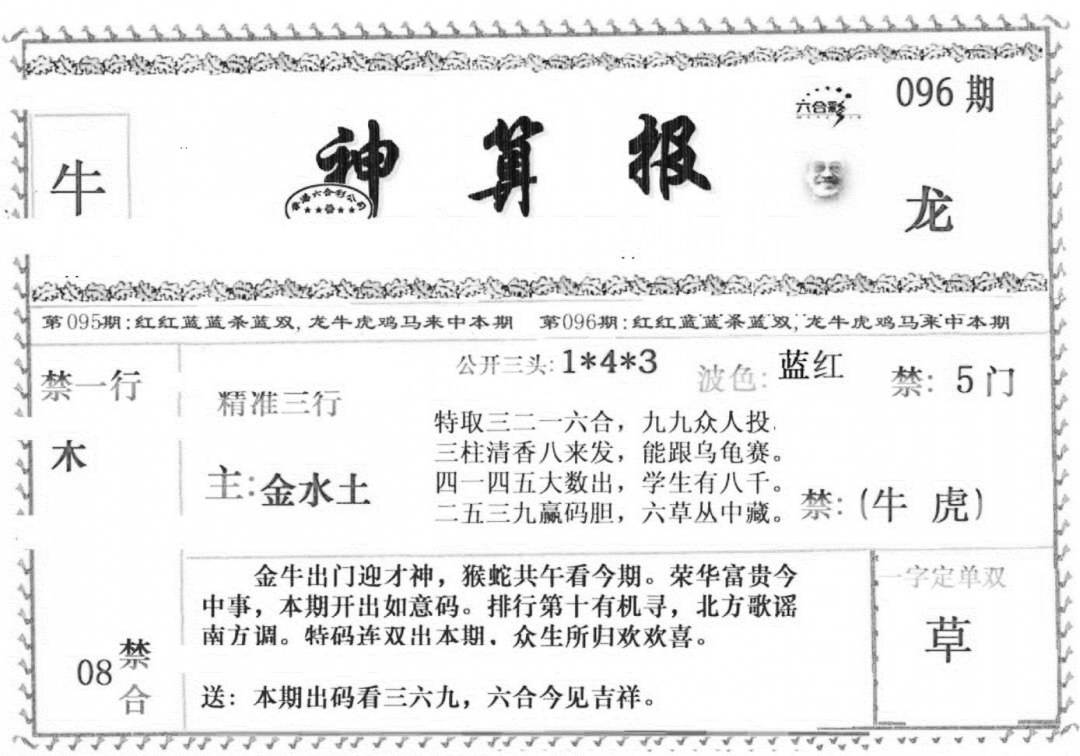 096 期
六合彩
牛
神算报
香港六合彩公司
龙
第095期:红红蓝蓝杀蓝双,龙牛虎鸡马来中本期 第096期:红红蓝蓝杀蓝双,龙牛虎鸡马来中本期
禁一行
木
精准三行
主:金水土
公开三头:1*4*3
波色:蓝红
禁:5门
特取三二一六合，九九众人投.
三柱清香八来发，能跟乌龟赛。
四一四五大数出，学生有八千。
二五三九赢码胆，六草丛中藏。
禁:(牛 虎)
08 禁合
金牛出门迎才神，猴蛇共午看今期。荣华富贵今
中事，本期开出如意码。排行第十有机寻，北方歌谣
南方调。特码连双出本期，众生所归欢欢喜。
送：本期出码看三六九，六合今见吉祥。
一字定单双
草